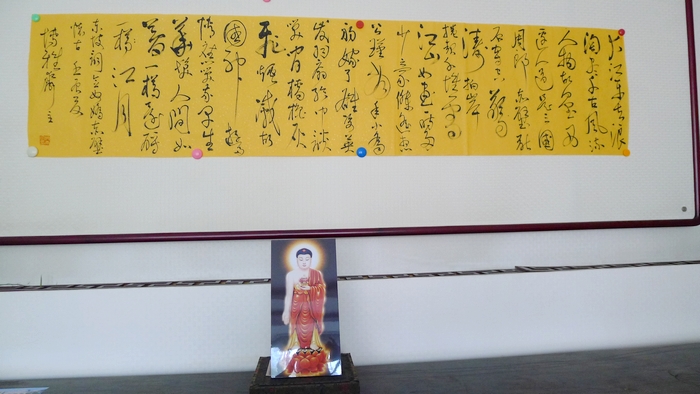 大江东去浪
淘尽千古风流
人物故垒西
边人道是三國
周郎赤壁乱
石穿空惊
涛拍岸
捲起千堆雪
江山如画一时多
少豪杰遥想
公瑾当年小乔
初嫁了雄姿英
发羽扇纶巾谈
笑间樯橹灰
飞烟灭故
國神游
情应笑我早生
华发人间如
梦一樽还酹
江月
东坡词念奴娇赤壁
怀古